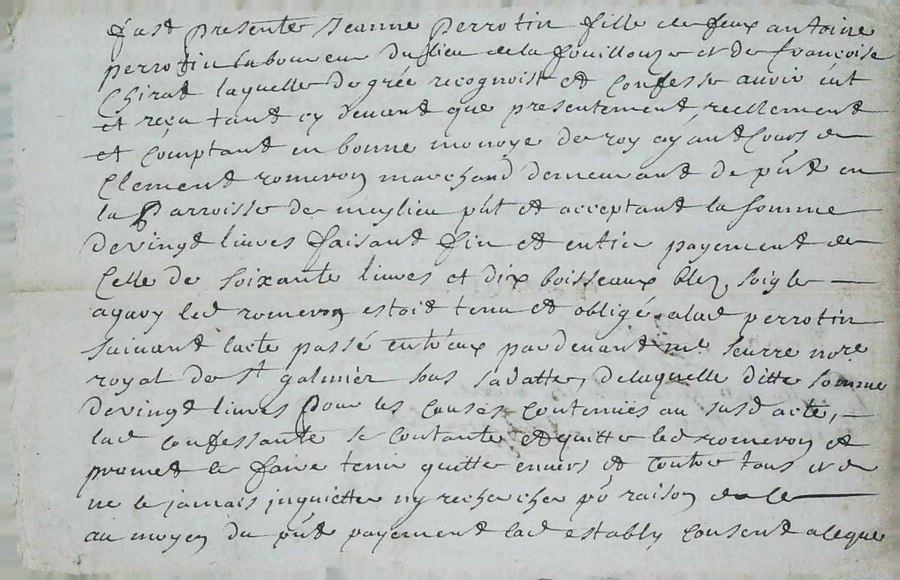 fust presente Jeanne perrotin fille de feux antoine
perrotin laboureur du lieu de la fouillouze et de françoise
Chirat laquelle de grée recognoist et confesse auoir eut
et reçu tant cy deuant que presentement, reellement
et comptant en bonne monoye de roy ayant Cours de
Clement romeron marchand demeurant de pñt en
la Parroisse de meylieu pñt et acceptant la somme
de vingt liures faisant fin et entier payement de
Celle de soixante liures et dix boisseaux bled soigle
aquoy led romeron estoit tenu et obligé alad perrotin
suiuant lacte passé entreux pardeuant me seurre nore
royal de st galmier sous sa datte, de laquelle ditte somme
de vingt liures pour les causes contenües au susd acte,
lad confessante se contante et quitte led romeron et
promet le faire tenir quitte enuers et contre tous et de
ne le jamais inquietter ny rechercher pr raison de ce
au moyen du pñt payement lad establÿ consent a ce que